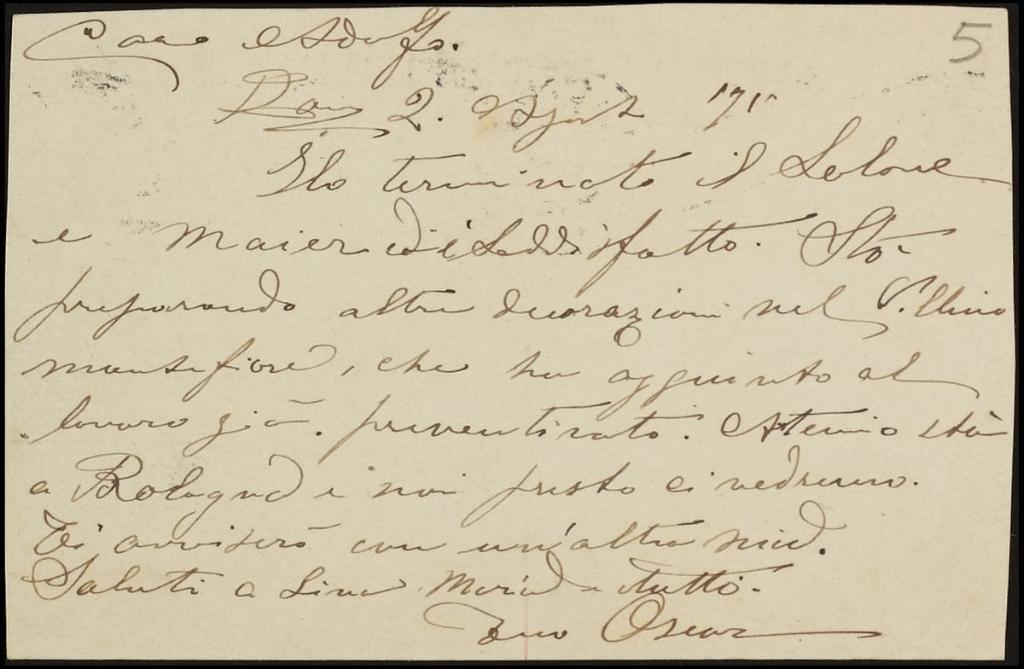 5
Caro Adolfo.
2. Agosto "71"
Ho terminato il Salone
e Maier è Soddisfatto. Sto
preparando altre decorazioni nel
Montefiore, che ha aggiunto al
lavoro già preventivato. stà
a Bologna e noi presto ci vedremo.
Ti avviserò con un'altra mia.
Saluti a Lina Maria e tutti.
Tuo Oscar